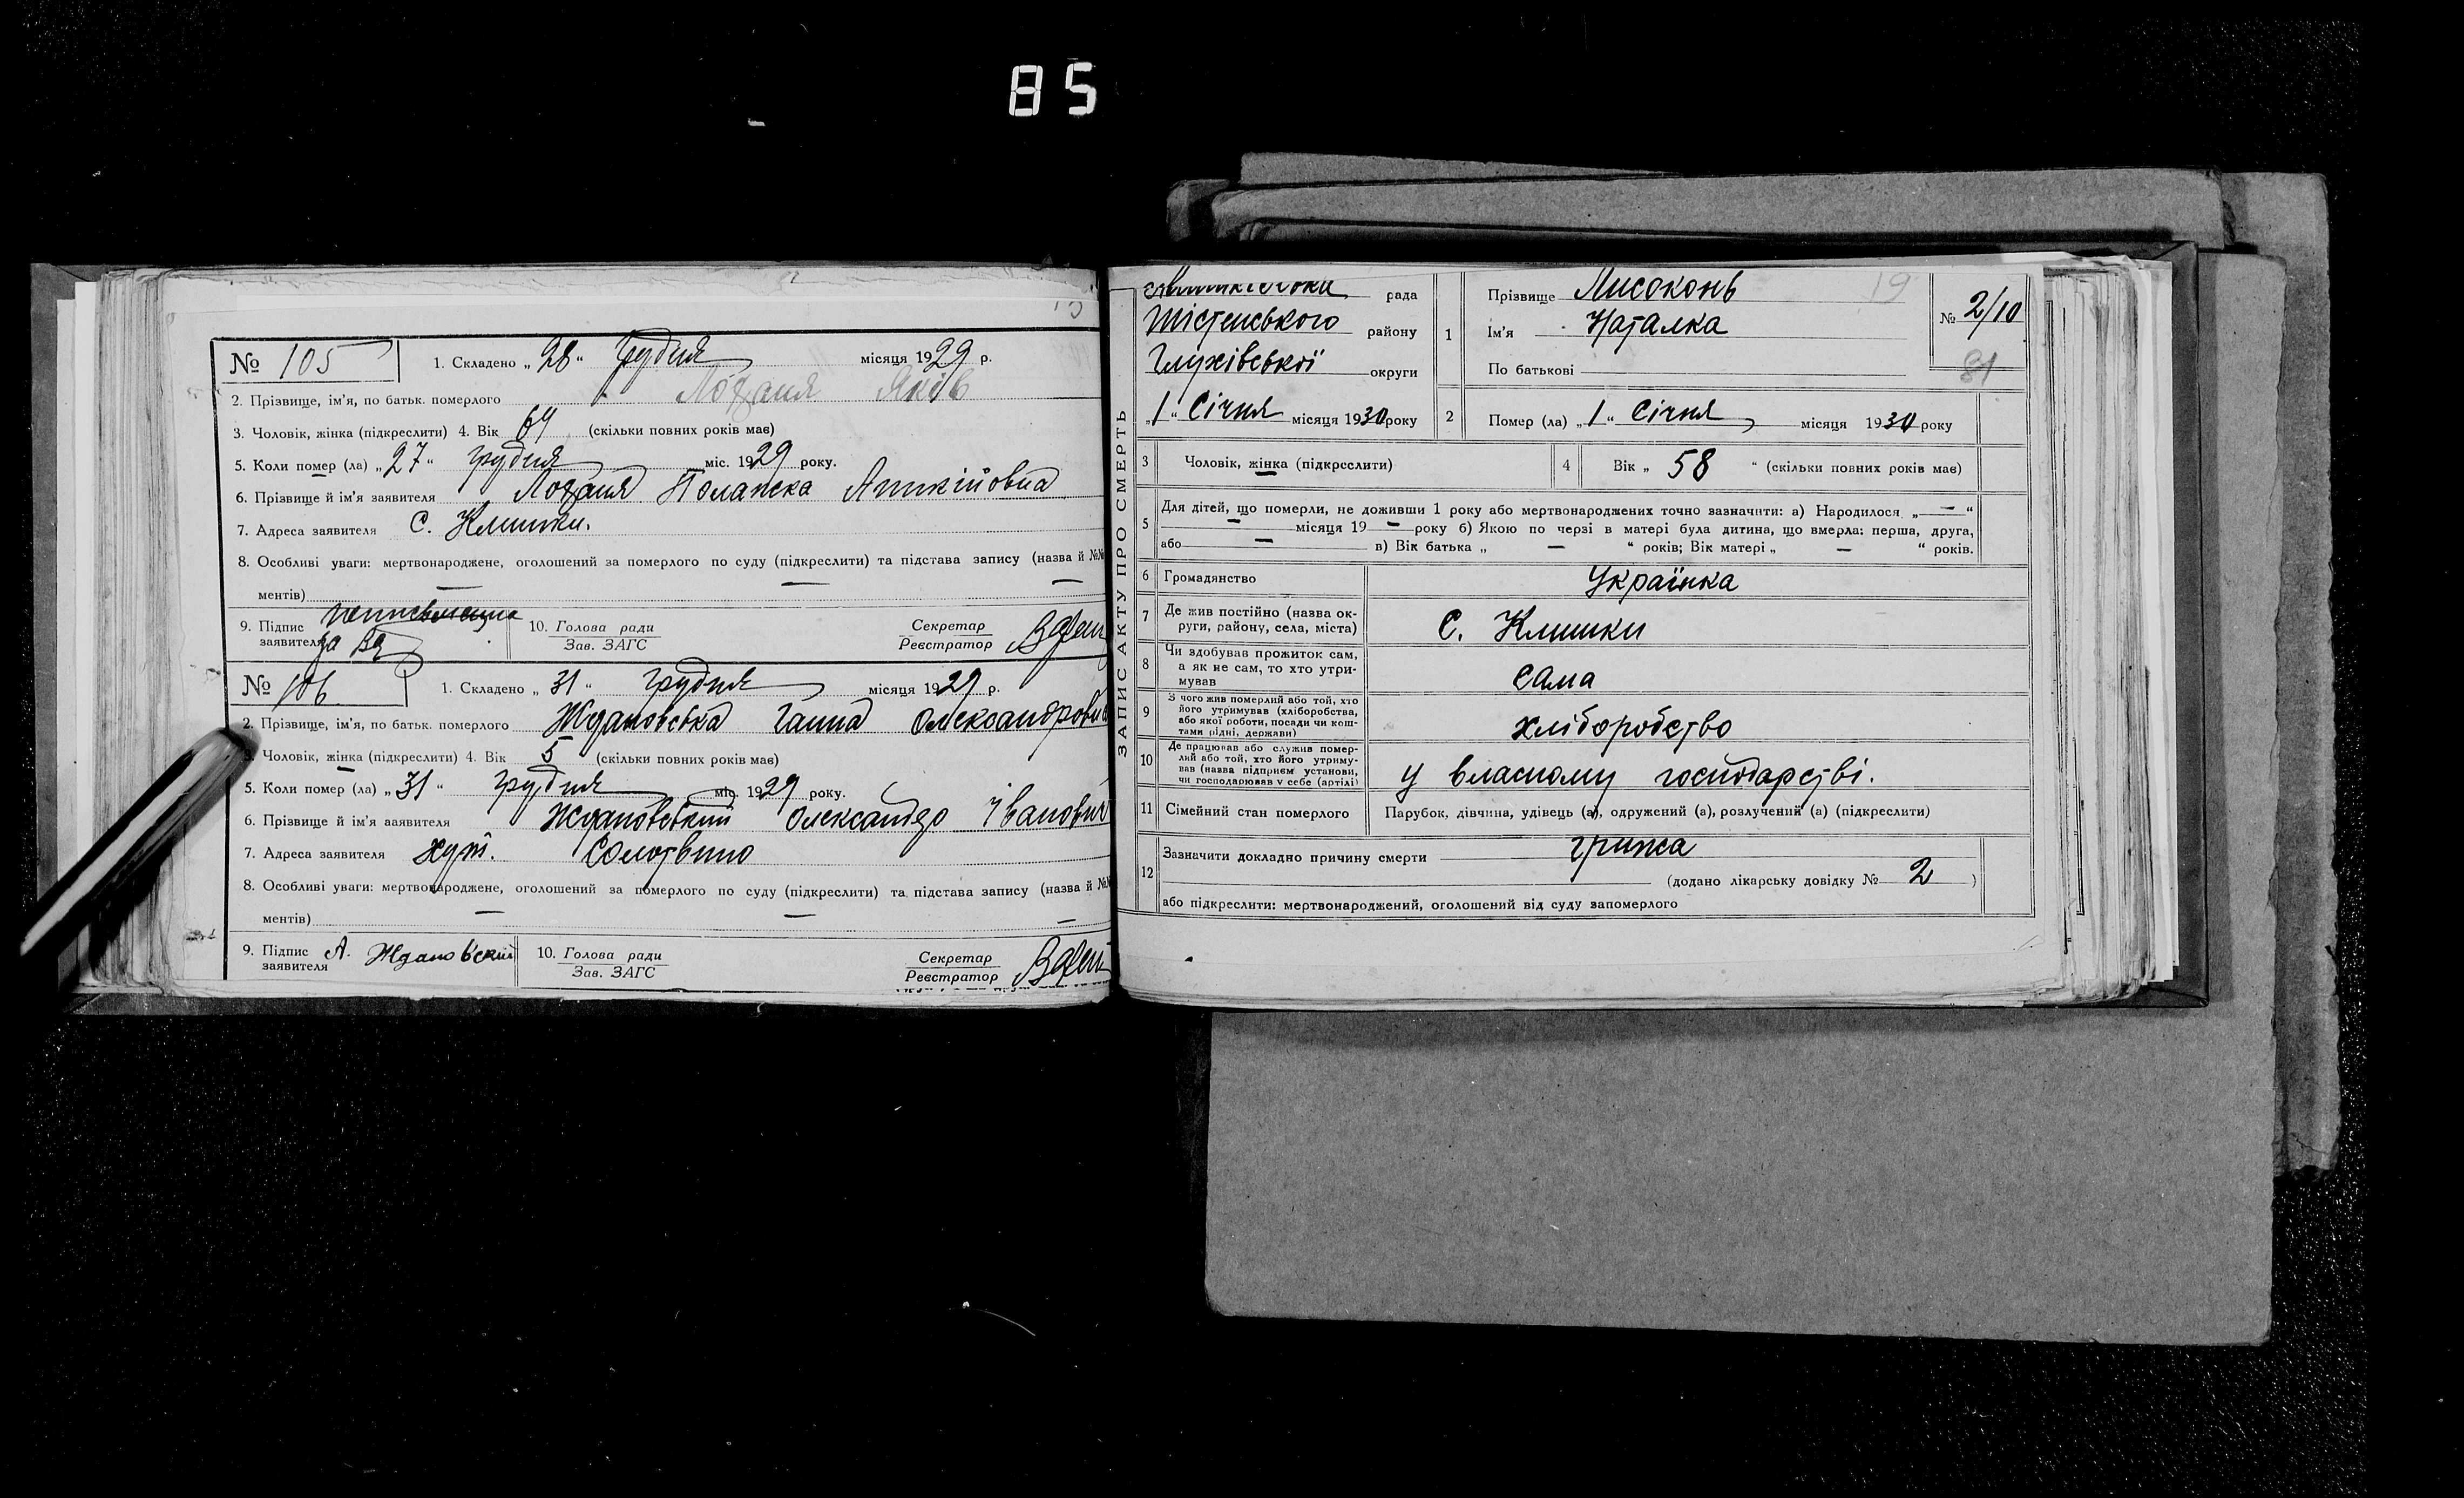 85
№ 105
1. Складено „ 28 “ Грудня місяця 1929 р.
2. Прізвище, ім'я, по батьк. померлого Лозаня Яків
3. Чоловік, жінка (підкреслити) 4. Вік 64 (скільки повних років має)
5. Коли помер (ла) „ 27 “ грудня міс. 1929 року.
6. Прізвище й ім'я заявителя Лозаня Палажска
7. Адреса заявителя С. Клишки.
8. Особливі уваги: мертвонароджене, оголошений за померлого по суду (підкреслити) та підстава запису (назва й №№
ментів) —
9. Підпис заявителя неписьменна за
10. Голова ради Зав. ЗАГС
Секретар Реєстратор
№ 106
1. Складено „ 31 “ Грудня місяця 1929 р.
2. Прізвище, ім'я, по батьк. померлого Ждановська Ганна Олександровна
3. Чоловік, жінка (підкреслити) 4. Вік 5 (скільки повних років має)
5. Коли помер (ла) „ 31 “ грудня міс. 1929 року.
6. Прізвище й ім'я заявителя Ждановський Олександр Іванович
7. Адреса заявителя хут. Солотвино
8. Особливі уваги: мертвонароджене, оголошений за померлого по суду (підкреслити) та підстава запису (назва й №№
ментів) — — —
9. Підпис заявителя А. Ждановский
10. Голова ради Зав. ЗАГС
Секретар Реєстратор
ЗАПИС АКТУ ПРО СМЕРТЬ
рада
району
Глухівської округи
„ 1 “ Січня місяця 1930 року
1 Прізвище Лисоконь 19
Ім'я Наталка
По батькові
№ 2/10
81
2 Помер (ла) „ 1 “ Січня місяця 1930 року
3 Чоловік, жінка (підкреслити)
4 Вік „ 58 “ (скільки повних років має)
5 Для дітей, що померли, не доживши 1 року або мертвонароджених точно зазначити: а) Народилося „ — “
— місяця 19 — року б) Якою по черзі в матері була дитина, що вмерла: перша, друга,
або — в) Вік батька „ — “ років; Вік матері „ — “ років.
6 Громадянство Українка
7 Де жив постійно (назва округи, району, села, міста) С. Клишки
8 Чи здобував прожиток сам, а як не сам, то хто утримував сама
9 З чого жив померлий або той, хто його утримував (хліборобства, або якої роботи, посади чи коштами рідні, держави) хліборобство
10 Де працював або служив померлий або той, хто його утримував (назва підприєм установи, чи господарював у себе (артілі) у власному господарстві.
11 Сімейний стан померлого Парубок, дівчина, удівець (а), одружений (а), розлучений (а) (підкреслити)
12 Зазначити докладно причину смерти грижа
(додано лікарську довідку № 2 )
або підкреслити: мертвонароджений, оголошений від суду запомерлого